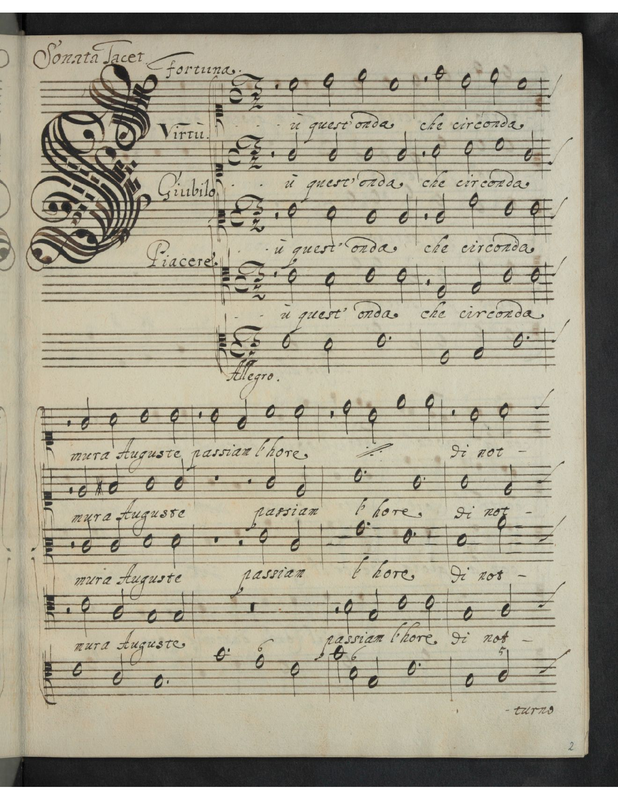 Sonata Tacet
Fortuna.
ù quest'onda che circonda
Virtù.
ù quest'onda che circonda
Giubilo.
ù quest'onda che circonda
Piacere.
ù quest'onda che circonda
Allegro.
mura Auguste passiam l'hore di not-
mura Auguste passiam l'hore di not-
mura Auguste passiam l'hore di not-
mura Auguste passiam l'hore di not-
6 6 5
-turno
2